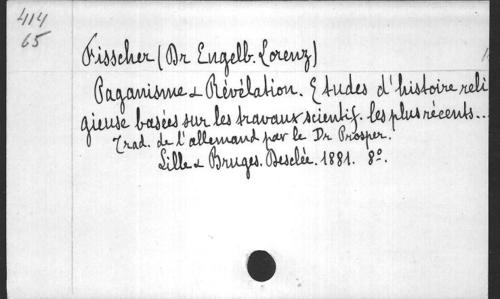 414
65
Fisscher (Dr Engelb. Lorenz)
Paganisme & Révélation. Etudes d'histoire reli
gieuse basées sur les travaux scientif. les plus récents...
Trad. de l'allemand par le Dr Prosper.
Lille & Bruges. Desclée. 1881. 8º.